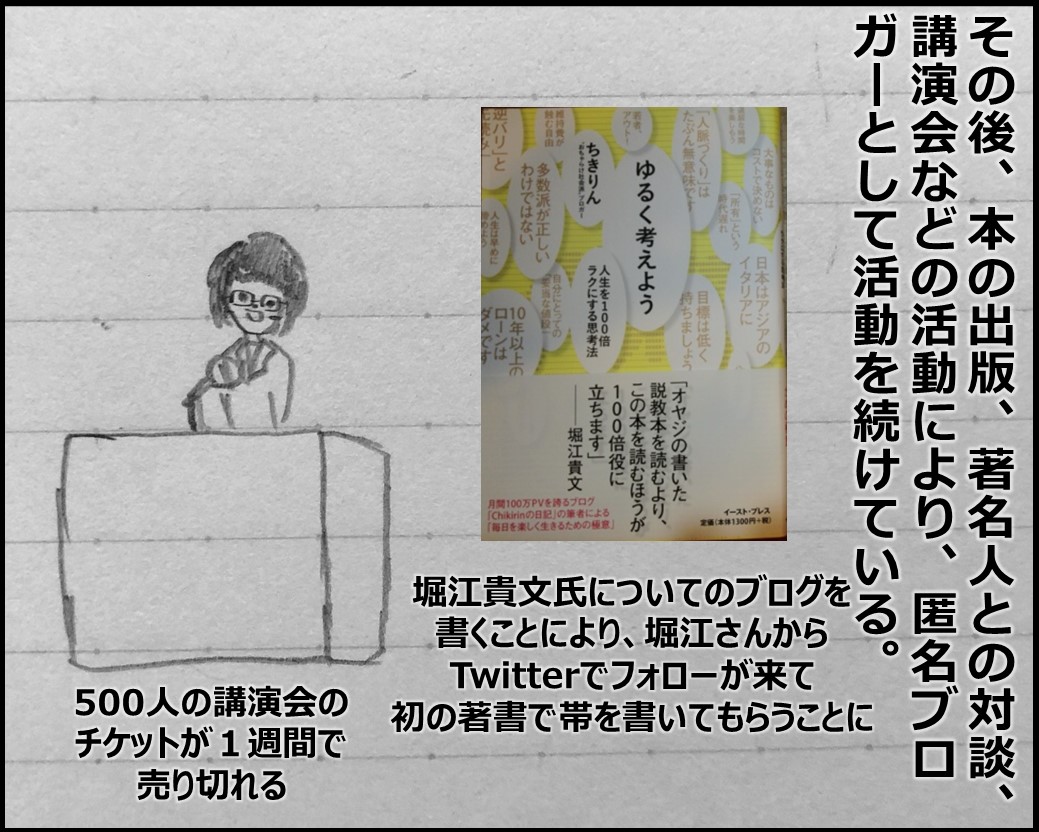 その後、本の出版、著名人との対談、
講演会などの活動により、匿名ブロ
ガーとして活動を続けている。
逆バリ」と
若者、
アウト!
「人脈づくり」は
たぶん無意味です
大事なものは
コストで決めない
「所有」という
時代遅れ
ちきりん
"おちゃらけ社会派"ブロガー
ゆるく考えよう
人生を100倍
ラクにする思考法
多数派が正しい
わけではない
人生は早めに
日本はアジアの
イタリアに
目標は低く
持ちましょう
10年以上の
ローンは
ダメです
「オヤジの書いた
説教本を読むより、
この本を読むほうが
100倍役に
立ちます」
――堀江貴文
月間100万PVを誇るブログ
「Chikirinの日記」の筆者による
「毎日を楽しく生きるための極意」
イースト・プレス
定価(本体1300円+税)
堀江貴文氏についてのブログを
書くことにより、堀江さんから
Twitterでフォローが来て
初の著書で帯を書いてもらうことに
500人の講演会の
チケットが1週間で
売り切れる